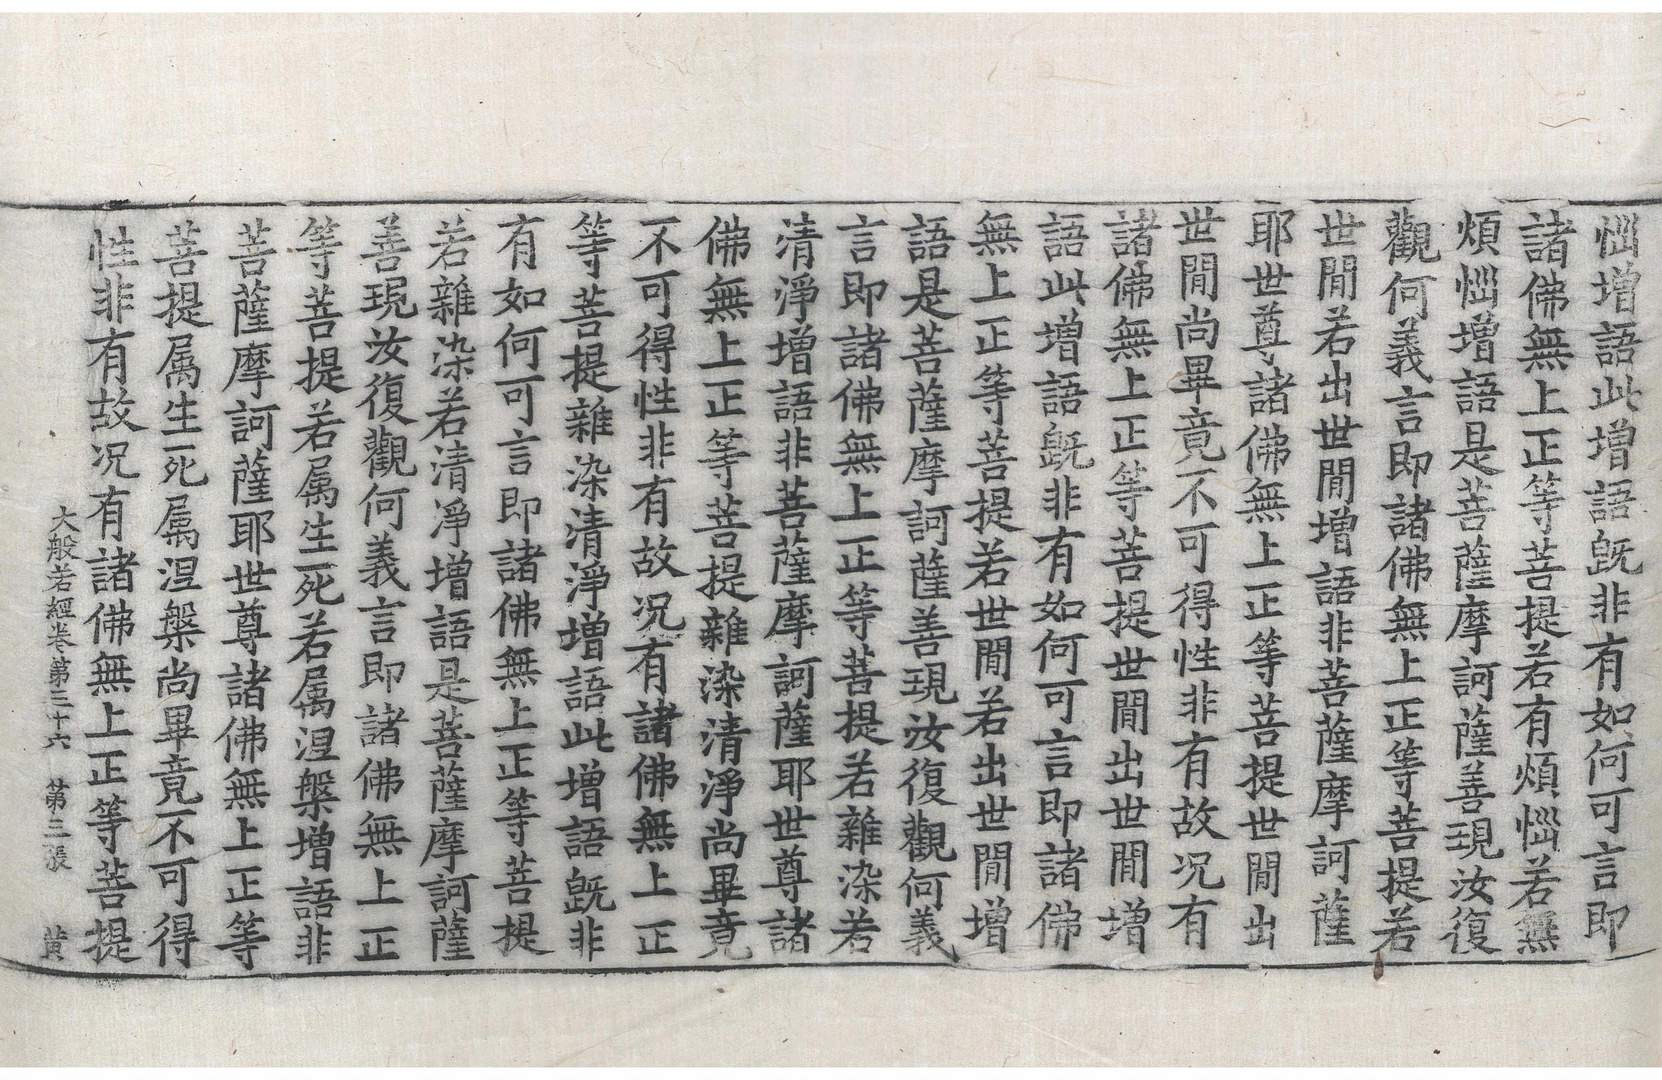 惱增語此增語既非有如何可言即
諸佛無上正等菩提若有煩惱若無
煩惱增語是菩薩摩訶薩善現汝復
觀何義言即諸佛無上正等菩提若
世閒若出世閒增語非菩薩摩訶薩
耶世尊諸佛無上正等菩提世閒出
世閒尚畢竟不可得性非有故况有
諸佛無上正等菩提世閒出世閒增
語此增語既非有如何可言即諸佛
無上正等菩提若世閒若出世閒增
語是菩薩摩訶薩善現汝復觀何義
言即諸佛無上正等菩提若雜染若
清淨增語非菩薩摩訶薩耶世尊諸
佛無上正等菩提雜染清淨尚畢竟
不可得性非有故况有諸佛無上正
等菩提雜染清淨增語此增語既非
有如何可言即諸佛無上正等菩提
若雜染若清淨增語是菩薩摩訶薩
善現汝復觀何義言即諸佛無上正
等菩提若属生死若属涅槃增語非
菩薩摩訶薩耶世尊諸佛無上正等
菩提属生死属涅槃尚畢竟不可得
性非有故况有諸佛無上正等菩提
大般若經卷第三十六 第三張 黄